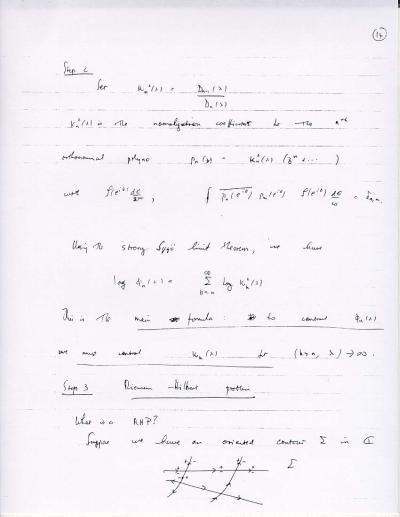 14
Step 2
Set κ_n²(λ) = D_{n-1}(λ) / D_n(λ)
κ_n²(λ) is the normalization coefficient for the nth
orthonormal polyno p_n(z) = κ_n(λ) (z^n + ... )
wrt f(e^{iθ}) dθ/2π , ∫ \overline{p_n(e^{iθ})} p_m(e^{iθ}) f(e^{iθ}) dθ/2π = δ_{n,m}.
Using the strong Szegö limit theorem, we have
log φ_n(λ) = Σ_{k=n}^∞ log κ_k²(λ)
This is the main formula : to control φ_n(λ)
we must control κ_k(λ) for (k≥n, λ) → ∞.
Step 3 Riemann Hilbert problem
What is a RHP?
Suppose we have an oriented contour Σ in ℂ
Σ